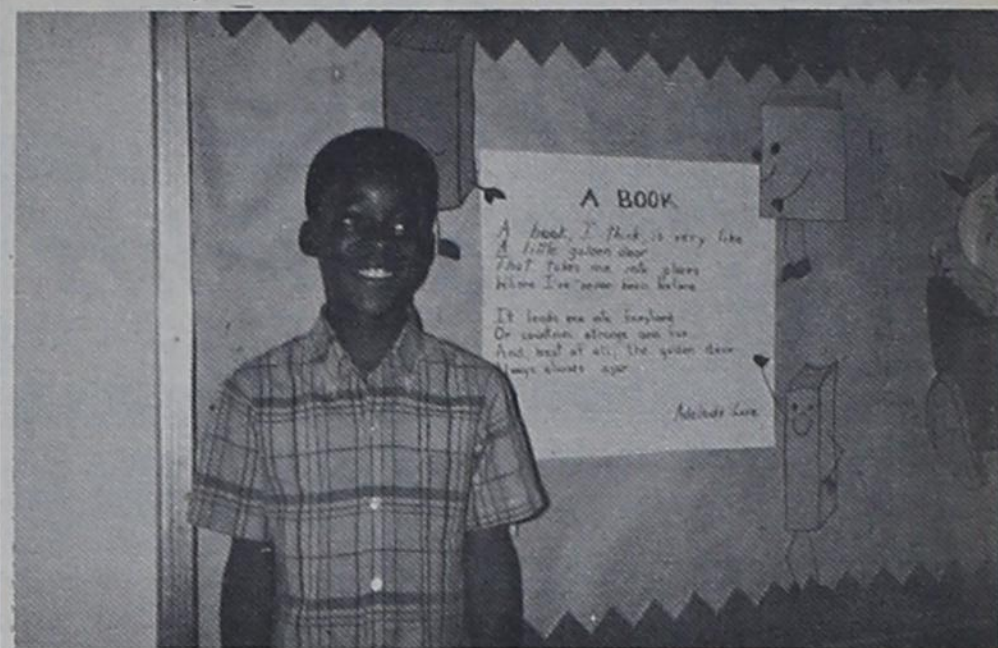 A BOOK
A book, I think, is very like
A little golden door
That takes me into places
Where I've never been before
It leads me into fairyland
Or countries strange and far
And, best of all, the golden door
always ajar
Adelaide Love